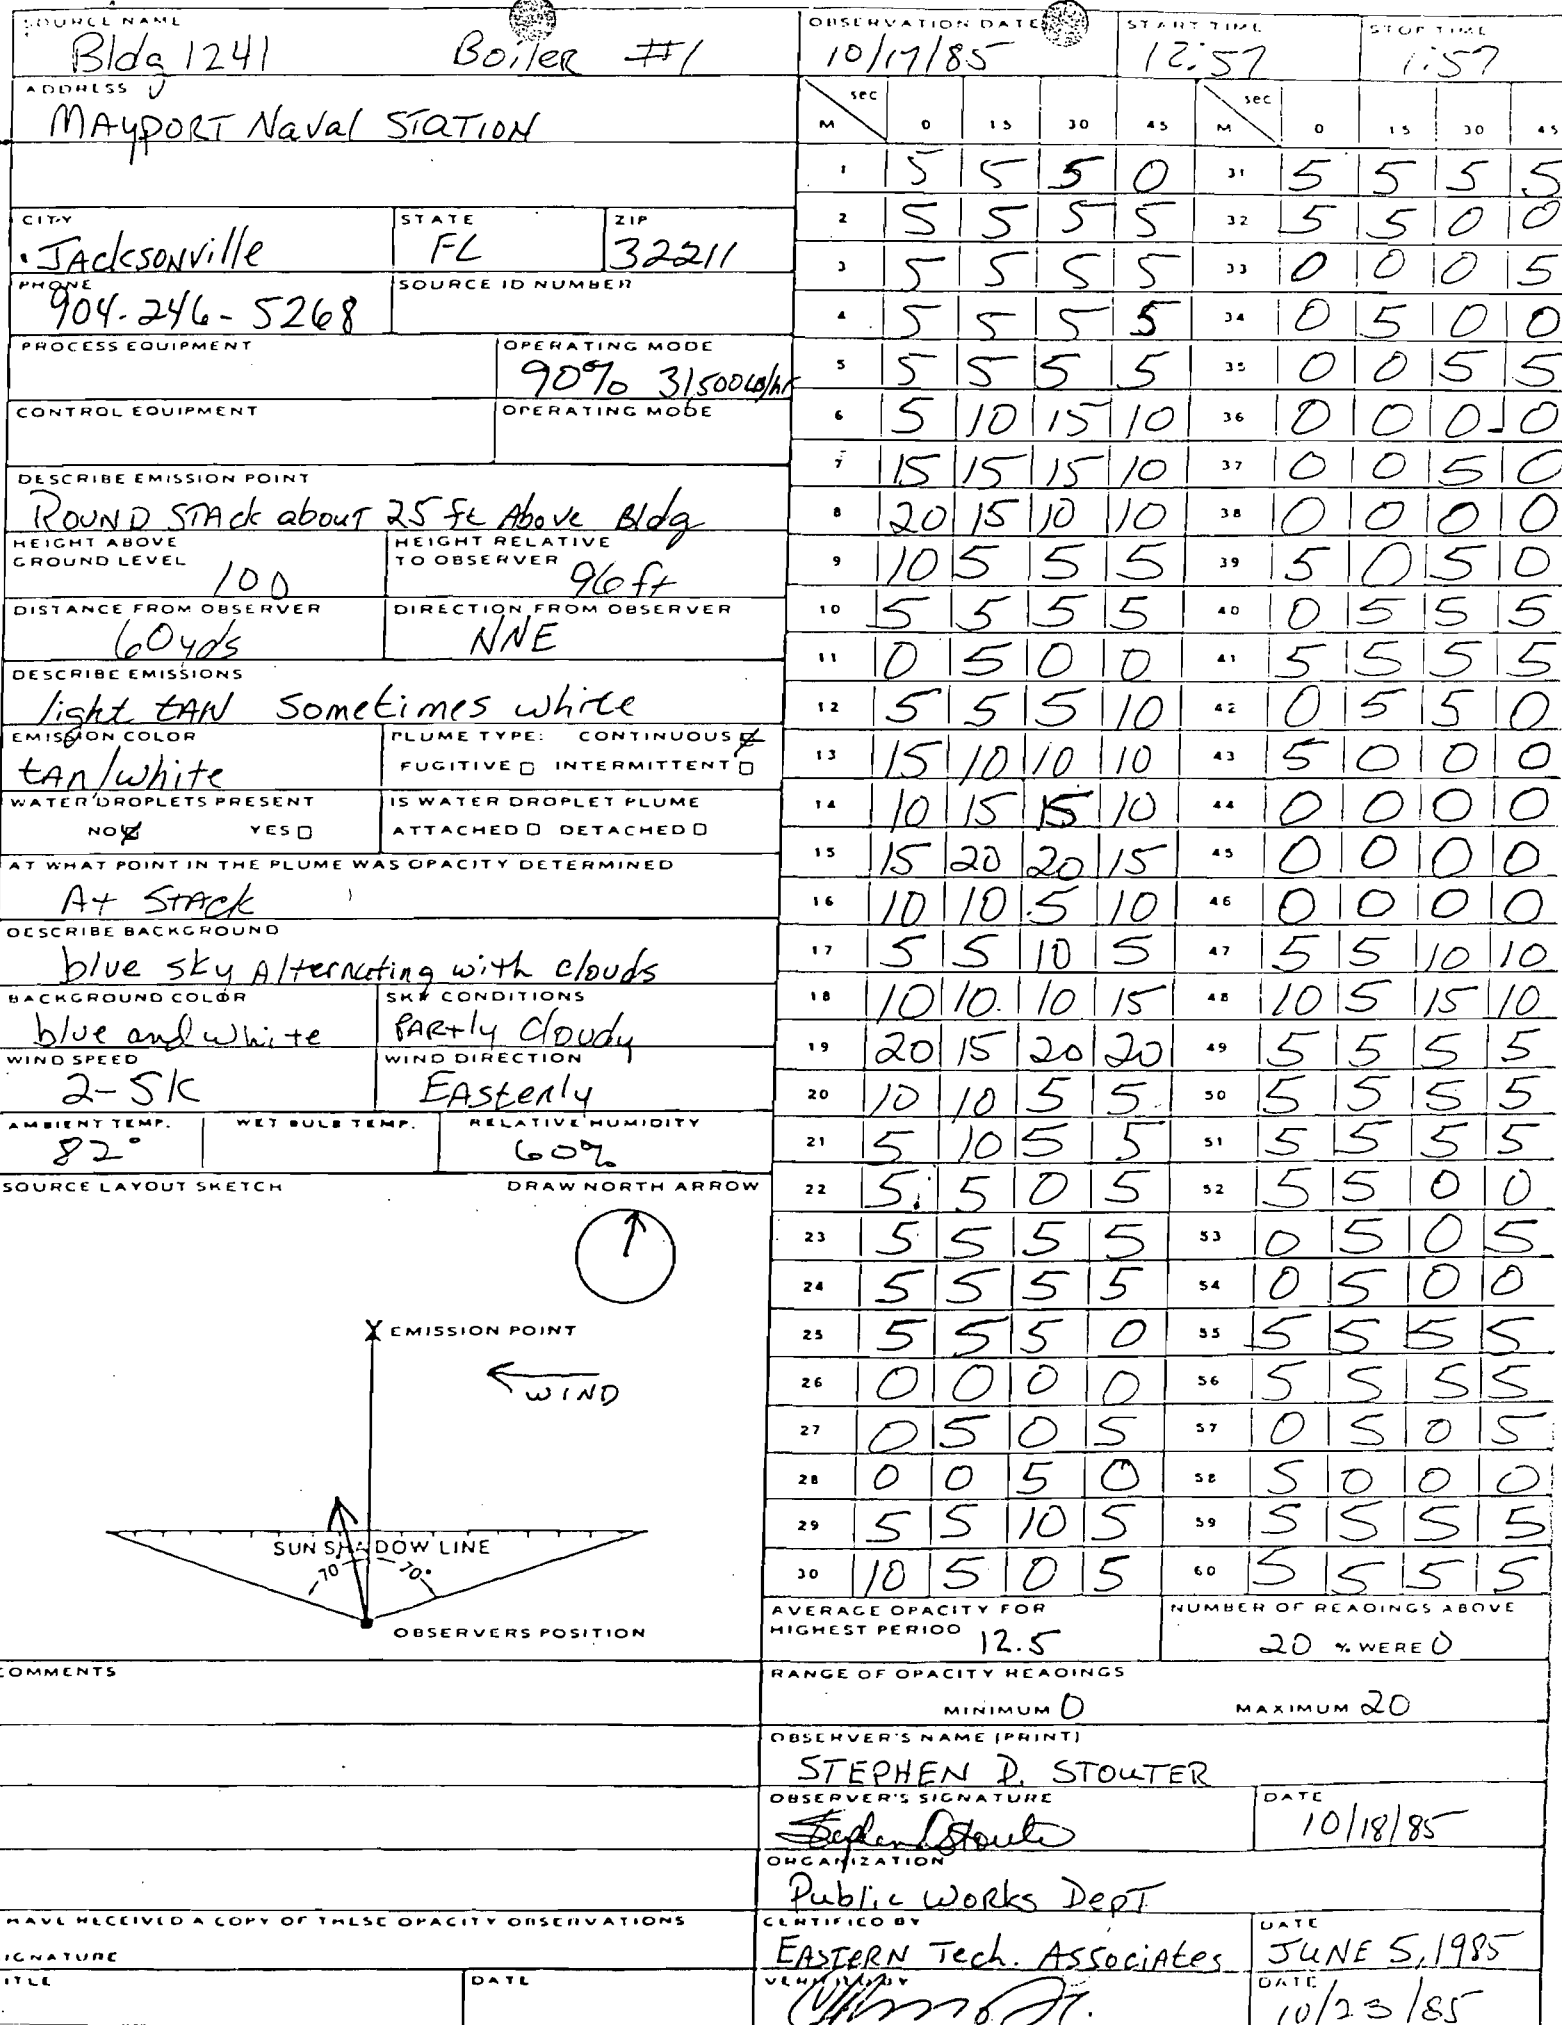 SOURCE NAME
Bldg 1241 Boiler #1
OBSERVATION DATE
10/17/85
START TIME
12:57
STOP TIME
1:57
ADDRESS
MAYPORT Naval STATION
CITY
Jacksonville
STATE
FL
ZIP
32211
PHONE
904-246-5268
SOURCE ID NUMBER
PROCESS EQUIPMENT
OPERATING MODE
90% 31500 lb/hr
CONTROL EQUIPMENT
OPERATING MODE
DESCRIBE EMISSION POINT
ROUND STAck about 25 ft Above Bldg
HEIGHT ABOVE GROUND LEVEL
100
HEIGHT RELATIVE TO OBSERVER
96 ft
DISTANCE FROM OBSERVER
60 yds
DIRECTION FROM OBSERVER
NNE
DESCRIBE EMISSIONS
light tAN Sometimes white
EMISSION COLOR
tAn/white
PLUME TYPE: CONTINUOUS
FUGITIVE INTERMITTENT
WATER DROPLETS PRESENT
NO YES
IS WATER DROPLET PLUME
ATTACHED DETACHED
AT WHAT POINT IN THE PLUME WAS OPACITY DETERMINED
At STAck
DESCRIBE BACKGROUND
blue sky Alternating with clouds
BACKGROUND COLOR
blue and white
SKY CONDITIONS
PARtly Cloudy
WIND SPEED
2-5K
WIND DIRECTION
EAsterly
AMBIENT TEMP.
82°
WET BULB TEMP.
RELATIVE HUMIDITY
60%
SOURCE LAYOUT SKETCH DRAW NORTH ARROW
X EMISSION POINT
WIND
SUN SHADOW LINE
70 70°
OBSERVERS POSITION
COMMENTS
HAVE RECEIVED A COPY OF THESE OPACITY OBSERVATIONS
IGNATURE
ITLE
DATE
M sec 0 15 30 45 M sec 0 15 30 45
1 5 5 5 0 31 5 5 5 5
2 5 5 5 5 32 5 5 0 0
3 5 5 5 5 33 0 0 0 5
4 5 5 5 5 34 0 5 0 0
5 5 5 5 5 35 0 0 5 5
6 5 10 15 10 36 0 0 0 0
7 15 15 15 10 37 0 0 5 0
8 20 15 10 10 38 0 0 0 0
9 10 5 5 5 39 5 0 5 0
10 5 5 5 5 40 0 5 5 5
11 0 5 0 0 41 5 5 5 5
12 5 5 5 10 42 0 5 5 0
13 15 10 10 10 43 5 0 0 0
14 10 15 15 10 44 0 0 0 0
15 15 20 20 15 45 0 0 0 0
16 10 10 5 10 46 0 0 0 0
17 5 5 10 5 47 5 5 10 10
18 10 10 10 15 48 10 5 15 10
19 20 15 20 20 49 5 5 5 5
20 10 10 5 5 50 5 5 5 5
21 5 10 5 5 51 5 5 5 5
22 5 5 0 5 52 5 5 0 0
23 5 5 5 5 53 0 5 0 5
24 5 5 5 5 54 0 5 0 0
25 5 5 5 0 55 5 5 5 5
26 0 0 0 0 56 5 5 5 5
27 0 5 0 5 57 0 5 0 5
28 0 0 5 0 58 5 0 0 0
29 5 5 10 5 59 5 5 5 5
30 10 5 0 5 60 5 5 5 5
AVERAGE OPACITY FOR HIGHEST PERIOD 12.5
NUMBER OF READINGS ABOVE
20 % WERE 0
RANGE OF OPACITY READINGS
MINIMUM 0 MAXIMUM 20
OBSERVER'S NAME (PRINT)
STEPHEN D. STOUTER
OBSERVER'S SIGNATURE
Stephen D Stouter
DATE
10/18/85
ORGANIZATION
Public Works Dept
CERTIFIED BY
EASTERN Tech. Associates
DATE
JUNE 5, 1985
VERIFIED BY
DATE
10/23/85